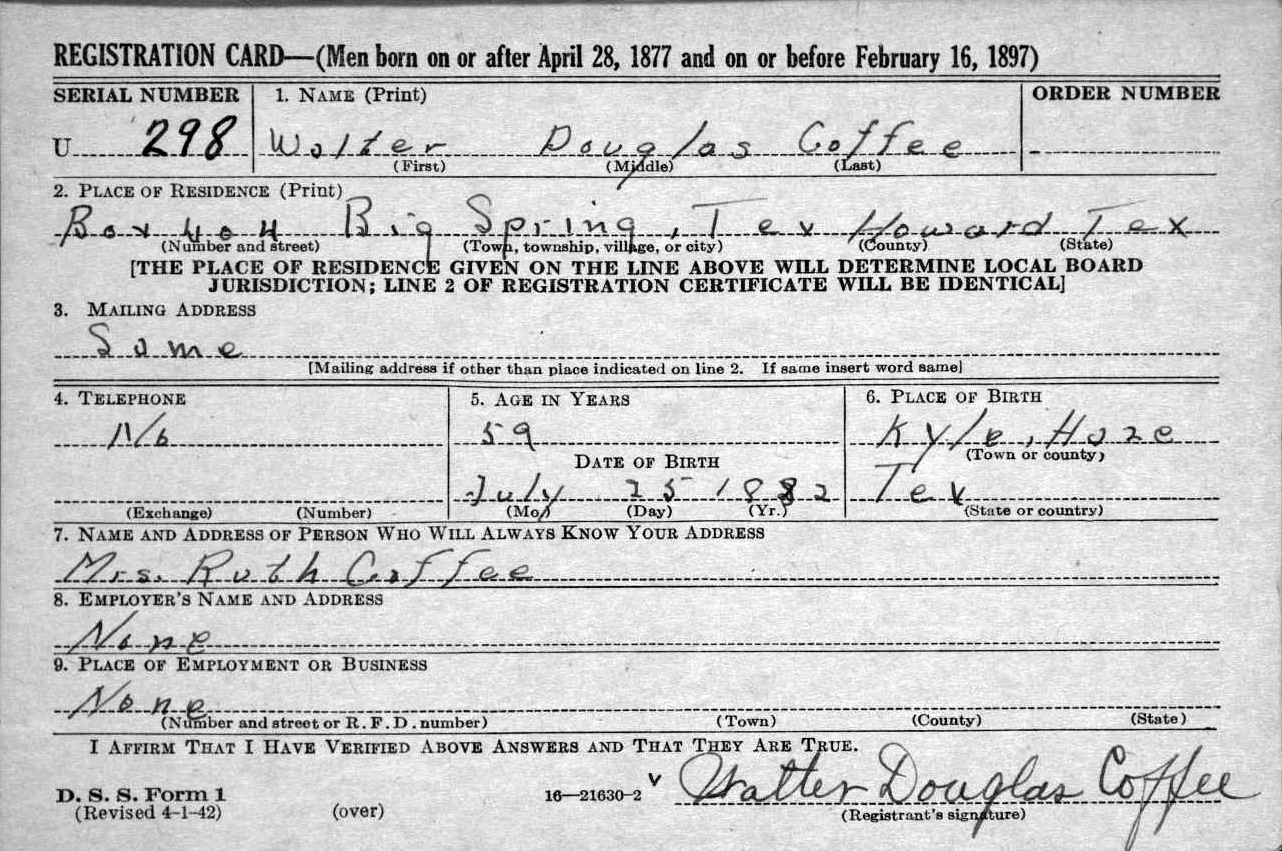 REGISTRATION CARD—(Men born on or after April 28, 1877 and on or before February 16, 1897)
SERIAL NUMBER 1. NAME (Print) ORDER NUMBER
U 298 Walter Douglas Coffee
(First) (Middle) (Last)
2. PLACE OF RESIDENCE (Print)
Box 404 Big Spring, Tex Howard Tex
(Number and street) (Town, township, village, or city) (County) (State)
[THE PLACE OF RESIDENCE GIVEN ON THE LINE ABOVE WILL DETERMINE LOCAL BOARD
JURISDICTION; LINE 2 OF REGISTRATION CERTIFICATE WILL BE IDENTICAL]
3. MAILING ADDRESS
Same
[Mailing address if other than place indicated on line 2. If same insert word same]
4. TELEPHONE 5. AGE IN YEARS 6. PLACE OF BIRTH
No 59 Kyle, Haze
DATE OF BIRTH (Town or county)
July 25 1882 Tex
(Exchange) (Number) (Mo.) (Day) (Yr.) (State or country)
7. NAME AND ADDRESS OF PERSON WHO WILL ALWAYS KNOW YOUR ADDRESS
Mrs. Ruth Coffee
8. EMPLOYER'S NAME AND ADDRESS
None
9. PLACE OF EMPLOYMENT OR BUSINESS
None
(Number and street or R. F. D. number) (Town) (County) (State)
I AFFIRM THAT I HAVE VERIFIED ABOVE ANSWERS AND THAT THEY ARE TRUE.
D. S. S. Form 1 16—21630-2 v Walter Douglas Coffee
(Revised 4-1-42) (over) (Registrant's signature)